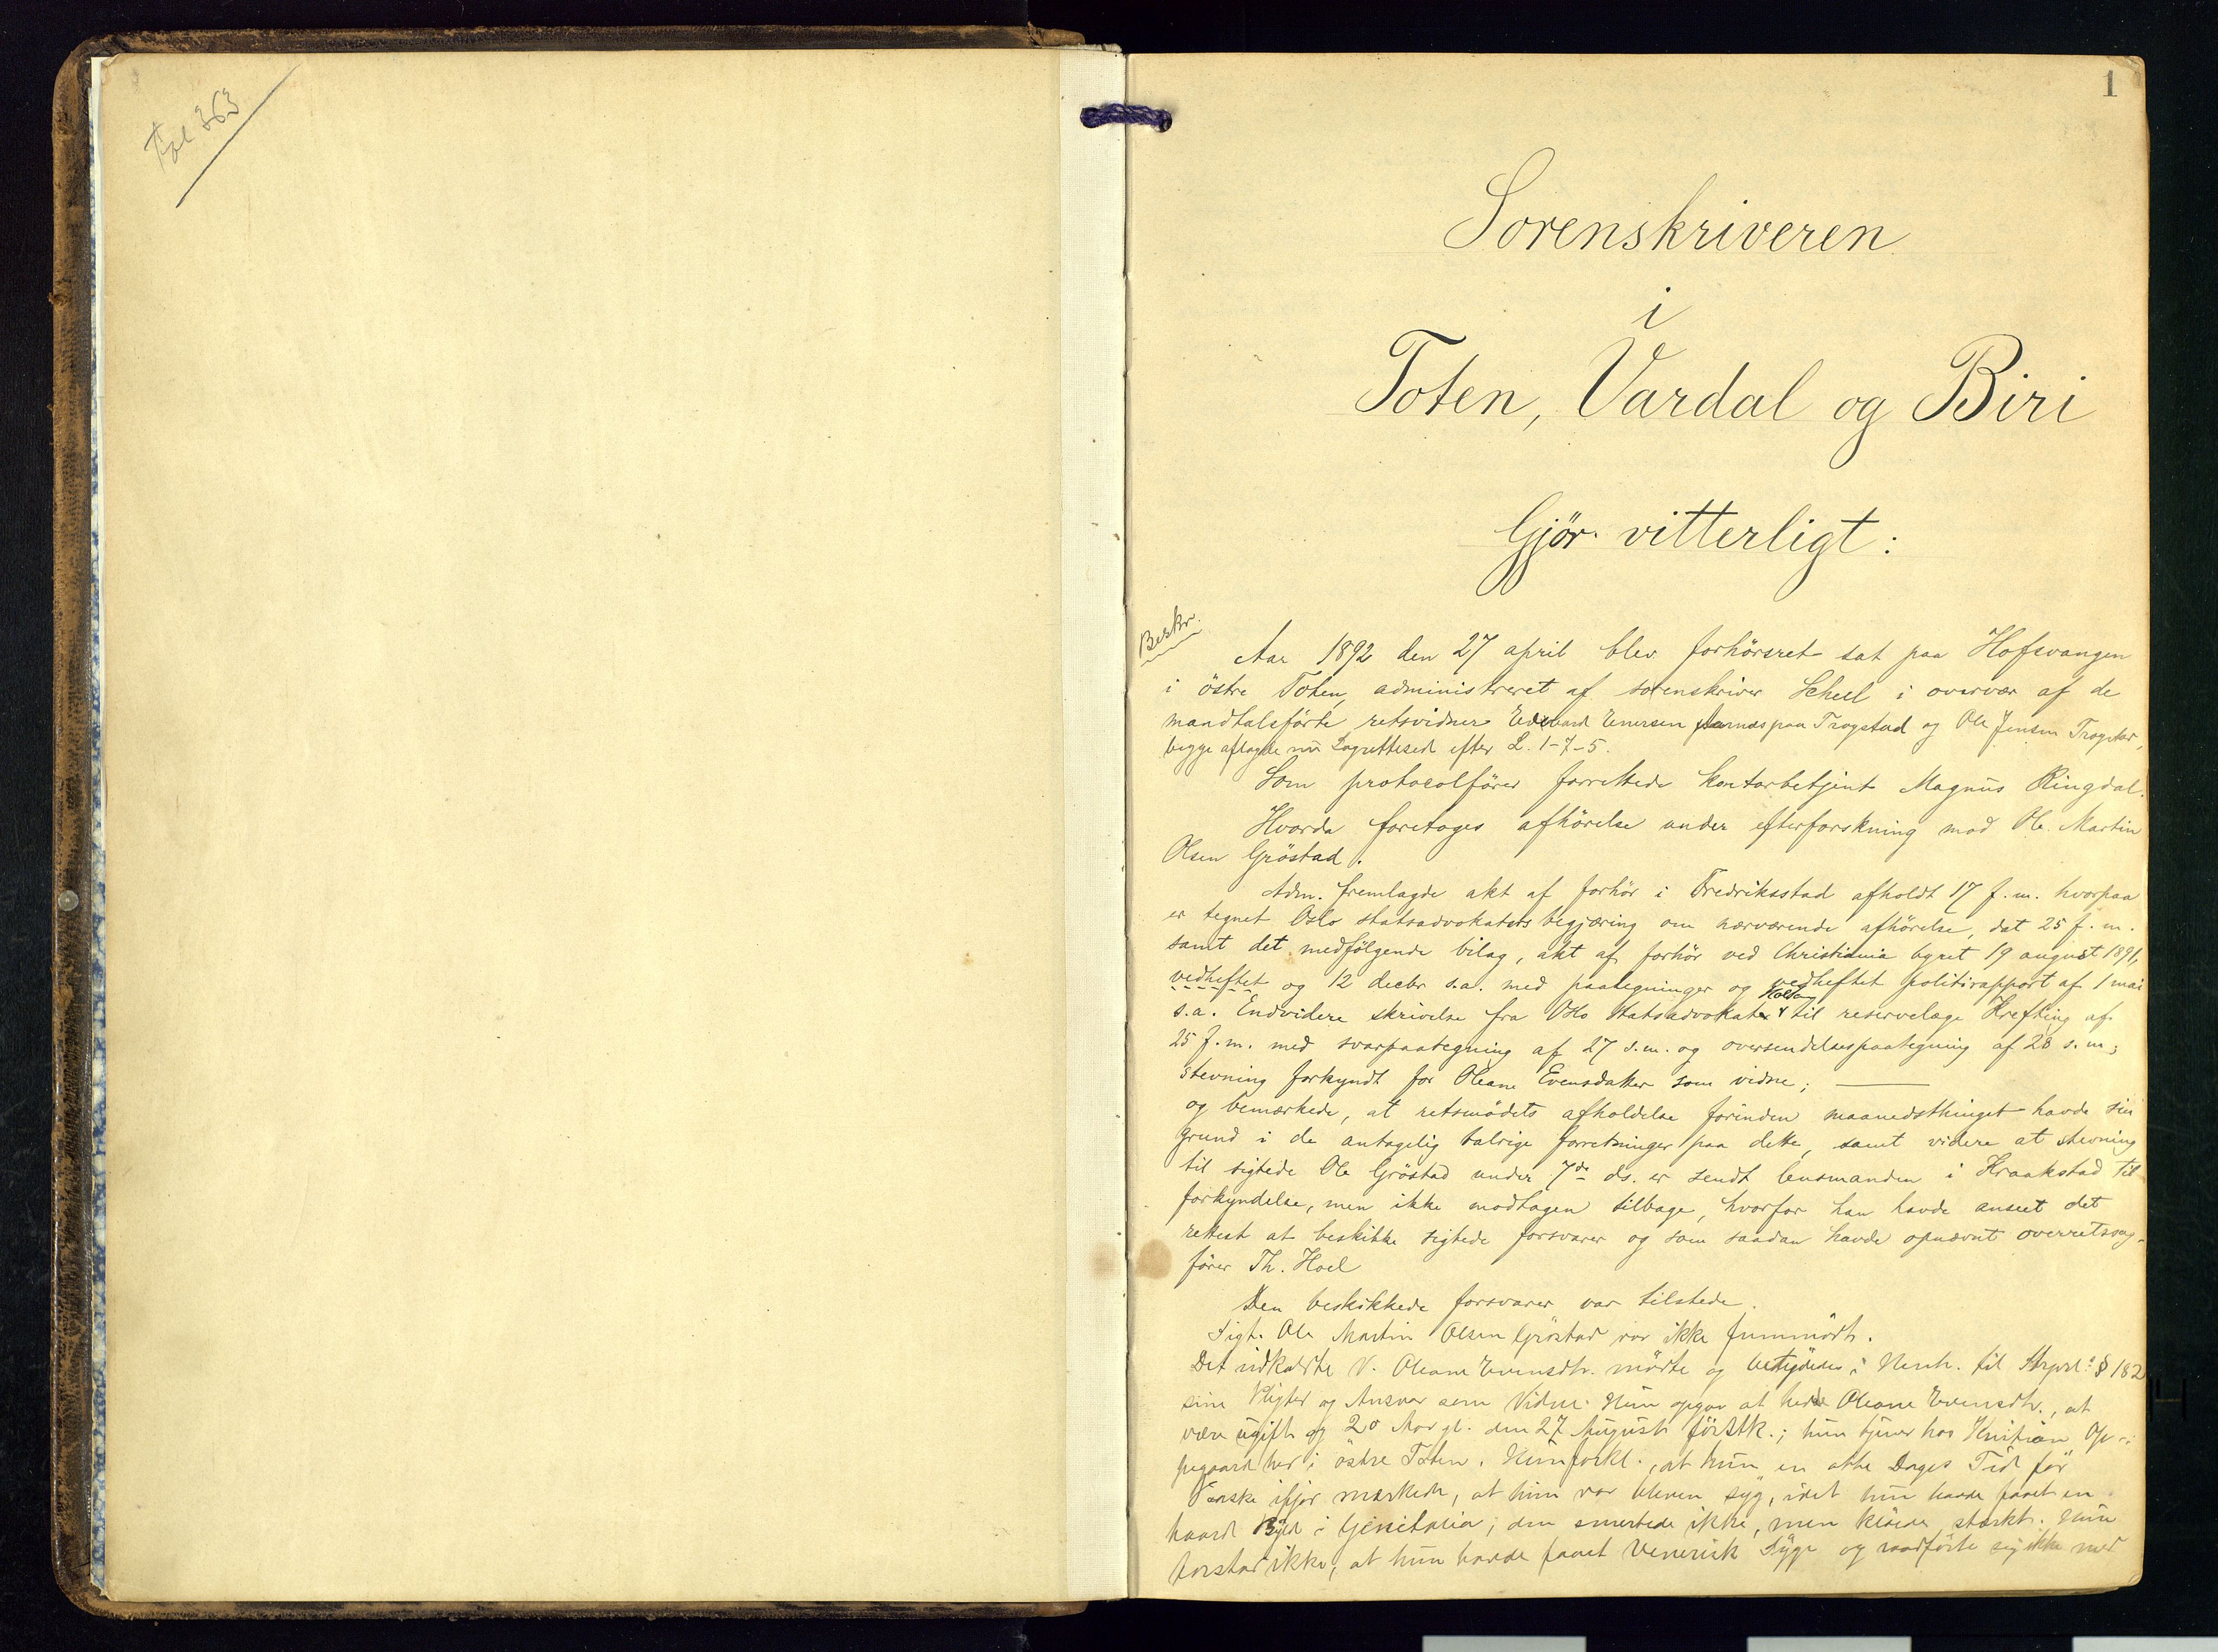 Fol 363
1
Sorenskriveren
i
Toten, Vardal og Biri
Gjör vitterligt:
Beskr.
Aar 1892 den 27 april blev forhörsret sat paa Hofsvangen
i östre Toten, administreret af sorenskriver Scheel i overvær af de
mandtalsförte retsvidner Edvard Enersen paa Trogstad og Ole Jensen
begge aflagde nu Lagrettesed efter L. 1-7-5.
Som protocolförer forrettede kontorbetjent Magnus Ringdal.
Hvorda foretoges afhörelse under efterforskning mod Ole Martin
Olsen Gröstad.
Adm. fremlagde akt af forhör i Fredriksstad afholdt 17 f. m. hvorpaa
er tegnet Oslo statsadvokaters begjæring om nærværende afhörelse, dat 25 f. m.
samt det medfölgende bilag, akt af forhör ved Christiania byret 19 august 1891,
vedheftet og 12 decbr s.a. med paategninger og vedheftet politirapport af 1 mai
s.a. Endvidere skrivelse fra Oslo statsadvokater til reservelæge Krefting af
25 f. m. med svarpaategning af 27 s. m. og oversendelsespaategning af 28 s. m;
stevning forkyndt for Oleane Evensdatter som vidne;
og bemærkede, at retsmödets afholdelse forinden maanedsthinget havde sin
grund i de antagelig talrige forretninger paa dette, samt videre at stevning
til sigtede Ole Gröstad under 7de ds. er sendt lensmanden i Kraakstad til
forkyndelse, men ikke modtagen tilbage, hvorfor han havde anseet det
rettest at beskikke sigtede forsvarer og som saadan havde opnævnt overretssag-
förer Th. Hoel
Den beskikkede forsvarer var tilstede.
Sigt. Ole Martin Olsen Gröstad var ikke fremmödt.
Det indkaldte V. Oleane Evensdtr. mödte og betydedes i Henh. til Strprl. § 182
sine Pligter og Ansvar som Vidne. Hun opgav at hedde Oleane Evensdtr., at
være ugift og 20 Aar gl. den 27 August förstk.; hun tjener hos Kristian Op-
pegaard her i östre Toten. Hun forkl., at hun en otte Dages Tid för
Paaske ifjor mærkede, at hun var bleven syg, idet hun havde faaet en
haard Byld i Genitalia; den smertede ikke, men klöede stærkt. Hun
forstod ikke, at hun havde faaet Venerisk Syge og raadförte sig ikke med